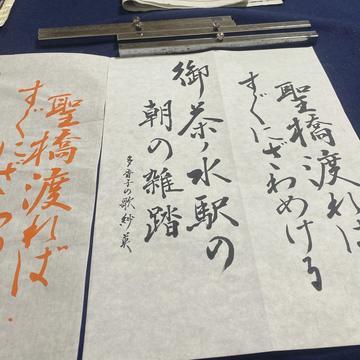 聖橋渡れば
すぐにざわめける
御茶ノ水駅の
朝の雑踏
多香子の歌 紗英
聖橋渡れば
すぐにざわめ